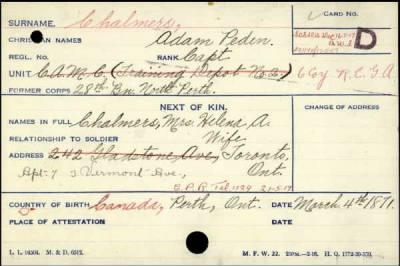 SURNAME. Chalmers, CARD NO.
CHRISTIAN NAMES Adam Peden.
REGL. NO. RANK Capt. D
UNIT C.A.M.C. (Training Depot No. 2)
FORMER CORPS 28th Bn. North Perth.
NEXT OF KIN. CHANGE OF ADDRESS
NAMES IN FULL Chalmers, Mrs. Helena A.
RELATIONSHIP TO SOLDIER Wife
ADDRESS 242 Gladstone Ave, Toronto,
Apt. 7 3 Vermont Ave, Ont.
COUNTRY OF BIRTH Canada, Perth, Ont. DATE March 4th 1871.
PLACE OF ATTESTATION DATE
M. F. W. 22.